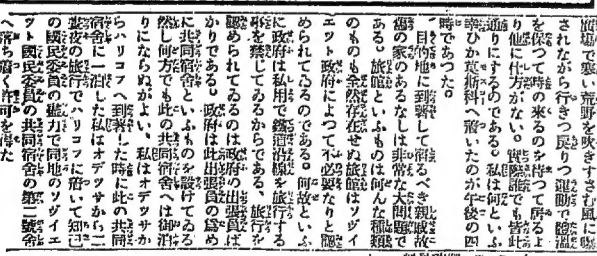 廣場で寒い荒野を吹きすさむ風に曝
されながら行きつ戻りつ運動で體溫
を保つて時の來るのを待つて居るよ
り他に仕方がない。實際誰でも皆此
通りにするのである。私は何といふ
幸ひか莫斯科へ着いたのが午後の四
時であつた。
目的地に到着して宿るべき親戚故
舊の家のあるなしは非常な大問題で
ある。旅館といふものは何んな種類
のものも全然存在せぬ旅館はソヴイ
エツト政府によつて不必要なりと認
められてゐるのである。何故といふ
に政府は私用で鐵道沿線を旅行する
事を禁じてゐるからである、旅行を
認められてゐるのは政府の出張員ば
かりである。政府は此出張員の爲め
に共同宿舍といふものを設けてゐる
然し何方でも此の共同宿舍へは御泊
りにならぬがよい、私はオデツサか
らハリコフへ到着した時に此の共同
宿舍に一泊した私はオデツサから二
晝夜の旅行でハリコフに着いて知己
の國民委員の盡力で同地のソヴイエ
ツト國民委員の共同宿舍の第二號舍
へ落ち着く許可を得た